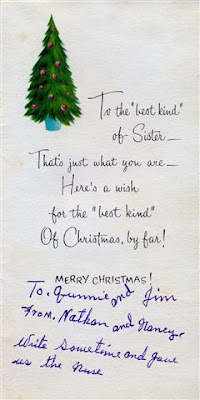 To the "best kind"
of Sister—
That's just what you are—
Here's a wish
for the "best kind"
Of Christmas, by far!
MERRY CHRISTMAS!
To, Gunnie and Jim
From, Nathan and Nancy.
Write sometime and
us the